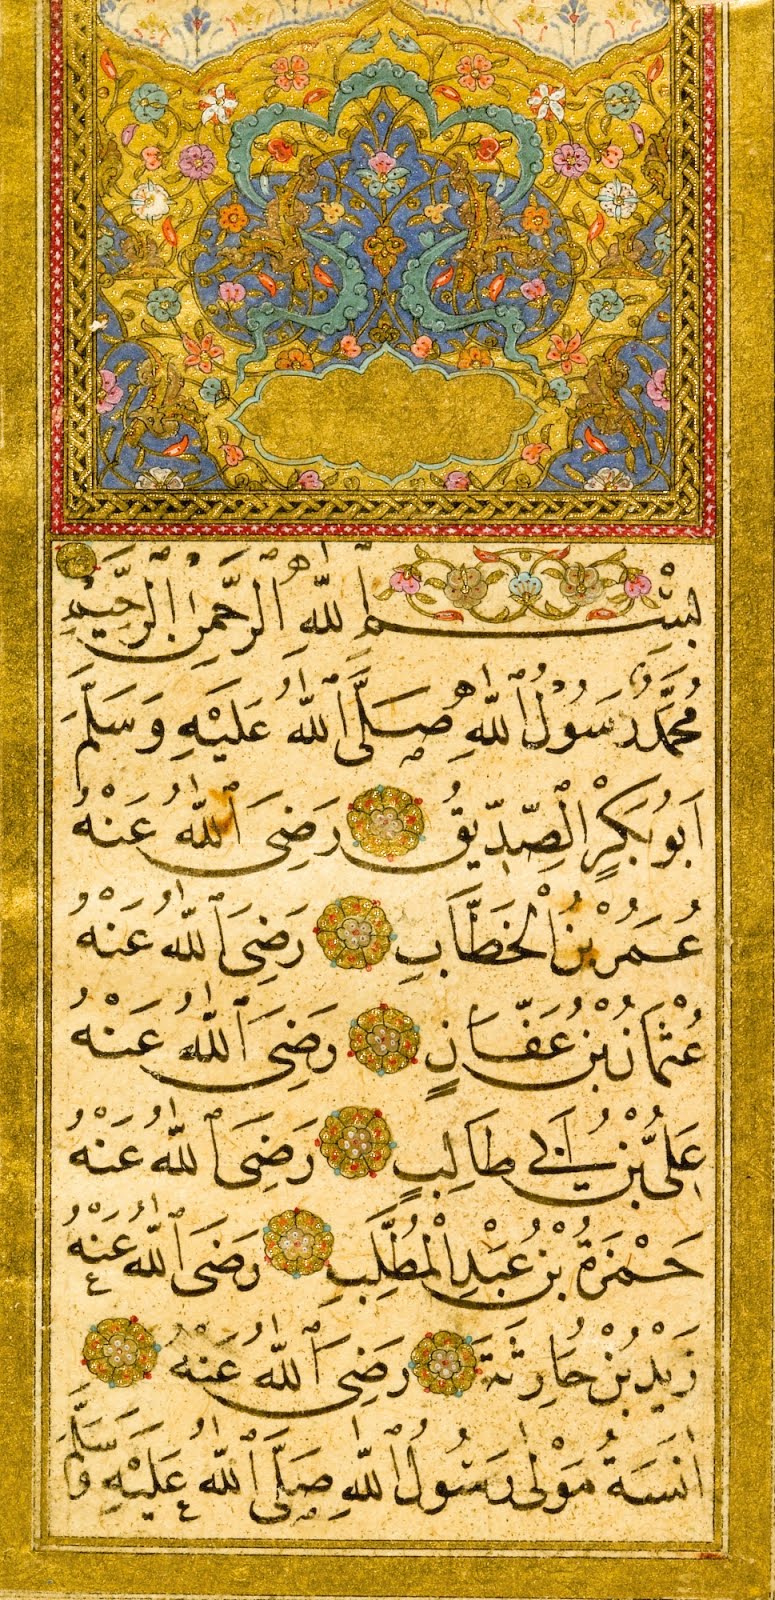 بِسْمِ اللهِ الرَّحْمٰنِ الرَّحِيمِ
مُحَمَّدٌ رَسُولُ اللهِ صَلَّى اللهُ عَلَيْهِ وَسَلَّمَ
اَبُو بَكْرٍ الصِّدِّيقُ رَضِىَ اللهُ عَنْهُ
عُمَرُ بْنُ الْخَطَّابِ رَضِىَ اللهُ عَنْهُ
عُثْمَانُ بْنُ عَفَّانٍ رَضِىَ اللهُ عَنْهُ
عَلِىُّ بْنُ اَبِى طَالِبٍ رَضِىَ اللهُ عَنْهُ
حَمْزَةُ بْنُ عَبْدِ الْمُطَّلِبِ رَضِىَ اللهُ عَنْهُ
زَيْدُ بْنُ حَارِثَةَ رَضِىَ اللهُ عَنْهُ
اَنَسَةُ مَوْلٰى رَسُولُ اللهِ صَلَّى اللهُ عَلَيْهِ وَسَلَّمَ